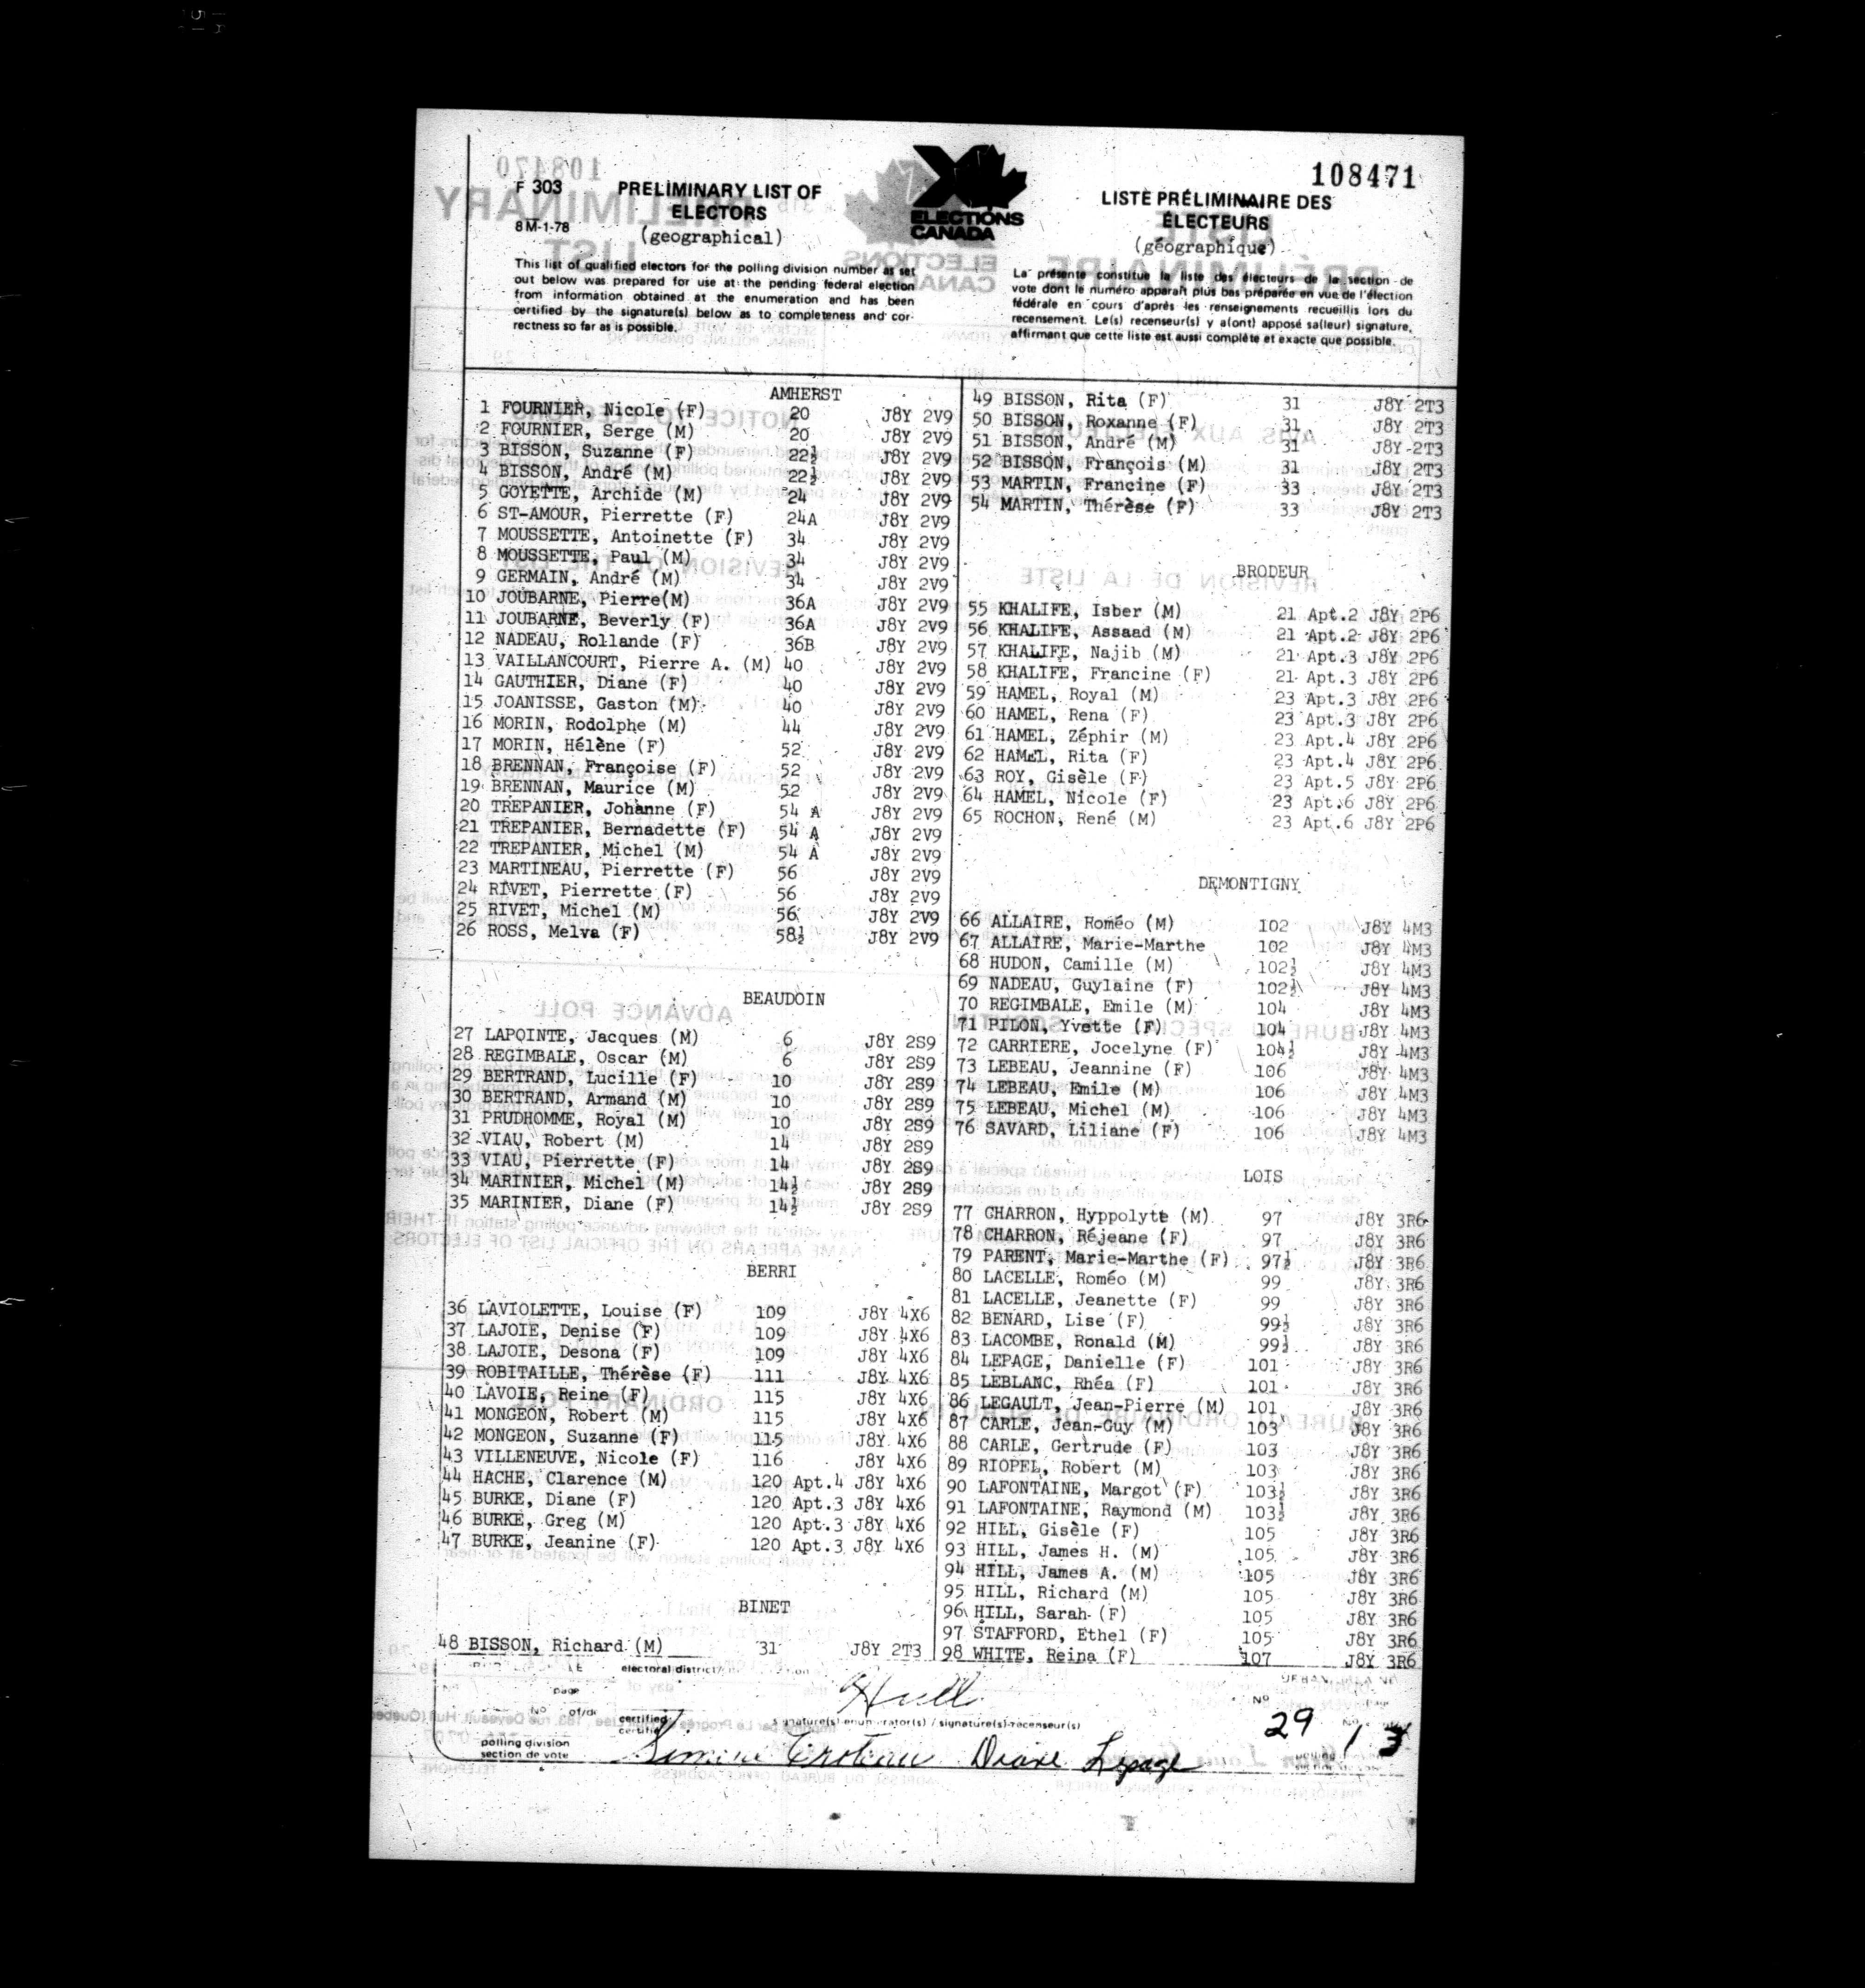 108471
F 303
8 M-1-78
PRELIMINARY LIST OF
ELECTORS
(geographical)
ELECTIONS
CANADA
LISTE PRÉLIMINAIRE DES
ÉLECTEURS
(géographique)
This list of qualified electors for the polling division number as set
out below was prepared for use at the pending federal election
from information obtained at the enumeration and has been
certified by the signature(s) below as to completeness and cor-
rectness so far as is possible.
La présente constitue la liste des électeurs de la section de
vote dont le numéro apparaît plus bas préparée en vue de l'élection
fédérale en cours d'après les renseignements recueillis lors du
recensement. Le(s) recenseur(s) y a(ont) apposé sa(leur) signature,
affirmant que cette liste est aussi complète et exacte que possible.
AMHERST
1 FOURNIER, Nicole (F) 20 J8Y 2V9
2 FOURNIER, Serge (M) 20 J8Y 2V9
3 BISSON, Suzanne (F) 22½ J8Y 2V9
4 BISSON, André (M) 22½ J8Y 2V9
5 GOYETTE, Archide (M) 24 J8Y 2V9
6 ST-AMOUR, Pierrette (F) 24A J8Y 2V9
7 MOUSSETTE, Antoinette (F) 34 J8Y 2V9
8 MOUSSETTE, Paul (M) 34 J8Y 2V9
9 GERMAIN, André (M) 34 J8Y 2V9
10 JOUBARNE, Pierre(M) 36A J8Y 2V9
11 JOUBARNE, Beverly (F) 36A J8Y 2V9
12 NADEAU, Rollande (F) 36B J8Y 2V9
13 VAILLANCOURT, Pierre A. (M) 40 J8Y 2V9
14 GAUTHIER, Diane (F) 40 J8Y 2V9
15 JOANISSE, Gaston (M) 40 J8Y 2V9
16 MORIN, Rodolphe (M) 44 J8Y 2V9
17 MORIN, Hélène (F) 52 J8Y 2V9
18 BRENNAN, Françoise (F) 52 J8Y 2V9
19 BRENNAN, Maurice (M) 52 J8Y 2V9
20 TREPANIER, Johanne (F) 54 A J8Y 2V9
21 TREPANIER, Bernadette (F) 54 A J8Y 2V9
22 TREPANIER, Michel (M) 54 A J8Y 2V9
23 MARTINEAU, Pierrette (F) 56 J8Y 2V9
24 RIVET, Pierrette (F) 56 J8Y 2V9
25 RIVET, Michel (M) 56 J8Y 2V9
26 ROSS, Melva (F) 58½ J8Y 2V9
BEAUDOIN
27 LAPOINTE, Jacques (M) 6 J8Y 2S9
28 REGIMBALE, Oscar (M) 6 J8Y 2S9
29 BERTRAND, Lucille (F) 10 J8Y 2S9
30 BERTRAND, Armand (M) 10 J8Y 2S9
31 PRUDHOMME, Royal (M) 10 J8Y 2S9
32 VIAU, Robert (M) 14 J8Y 2S9
33 VIAU, Pierrette (F) 14 J8Y 2S9
34 MARINIER, Michel (M) 14½ J8Y 2S9
35 MARINIER, Diane (F) 14½ J8Y 2S9
BERRI
36 LAVIOLETTE, Louise (F) 109 J8Y 4X6
37 LAJOIE, Denise (F) 109 J8Y 4X6
38 LAJOIE, Desona (F) 109 J8Y 4X6
39 ROBITAILLE, Thérèse (F) 111 J8Y 4X6
40 LAVOIE, Reine (F) 115 J8Y 4X6
41 MONGEON, Robert (M) 115 J8Y 4X6
42 MONGEON, Suzanne (F) 115 J8Y 4X6
43 VILLENEUVE, Nicole (F) 116 J8Y 4X6
44 HACHE, Clarence (M) 120 Apt.4 J8Y 4X6
45 BURKE, Diane (F) 120 Apt.3 J8Y 4X6
46 BURKE, Greg (M) 120 Apt.3 J8Y 4X6
47 BURKE, Jeanine (F) 120 Apt.3 J8Y 4X6
BINET
48 BISSON, Richard (M) 31 J8Y 2T3
49 BISSON, Rita (F) 31 J8Y 2T3
50 BISSON, Roxanne (F) 31 J8Y 2T3
51 BISSON, André (M) 31 J8Y 2T3
52 BISSON, François (M) 31 J8Y 2T3
53 MARTIN, Francine (F) 33 J8Y 2T3
54 MARTIN, Thérèse (F) 33 J8Y 2T3
BRODEUR
55 KHALIFE, Isber (M) 21 Apt.2 J8Y 2P6
56 KHALIFE, Assaad (M) 21 Apt.2 J8Y 2P6
57 KHALIFE, Najib (M) 21 Apt.3 J8Y 2P6
58 KHALIFE, Francine (F) 21 Apt.3 J8Y 2P6
59 HAMEL, Royal (M) 23 Apt.3 J8Y 2P6
60 HAMEL, Rena (F) 23 Apt.3 J8Y 2P6
61 HAMEL, Zéphir (M) 23 Apt.4 J8Y 2P6
62 HAMEL, Rita (F) 23 Apt.4 J8Y 2P6
63 ROY, Gisèle (F) 23 Apt.5 J8Y 2P6
64 HAMEL, Nicole (F) 23 Apt.6 J8Y 2P6
65 ROCHON, René (M) 23 Apt.6 J8Y 2P6
DEMONTIGNY
66 ALLAIRE, Roméo (M) 102 J8Y 4M3
67 ALLAIRE, Marie-Marthe 102 J8Y 4M3
68 HUDON, Camille (M) 102½ J8Y 4M3
69 NADEAU, Guylaine (F) 102½ J8Y 4M3
70 REGIMBALE, Emile (M) 104 J8Y 4M3
71 PILON, Yvette (F) 104 J8Y 4M3
72 CARRIERE, Jocelyne (F) 104½ J8Y 4M3
73 LEBEAU, Jeannine (F) 106 J8Y 4M3
74 LEBEAU, Emile (M) 106 J8Y 4M3
75 LEBEAU, Michel (M) 106 J8Y 4M3
76 SAVARD, Liliane (F) 106 J8Y 4M3
LOIS
77 CHARRON, Hyppolyte (M) 97 J8Y 3R6
78 CHARRON, Réjeane (F) 97 J8Y 3R6
79 PARENT, Marie-Marthe (F) 97½ J8Y 3R6
80 LACELLE, Roméo (M) 99 J8Y 3R6
81 LACELLE, Jeanette (F) 99 J8Y 3R6
82 BENARD, Lise (F) 99½ J8Y 3R6
83 LACOMBE, Ronald (M) 99½ J8Y 3R6
84 LEPAGE, Danielle (F) 101 J8Y 3R6
85 LEBLANC, Rhéa (F) 101 J8Y 3R6
86 LEGAULT, Jean-Pierre (M) 101 J8Y 3R6
87 CARLE, Jean-Guy (M) 103 J8Y 3R6
88 CARLE, Gertrude (F) 103 J8Y 3R6
89 RIOPEL, Robert (M) 103 J8Y 3R6
90 LAFONTAINE, Margot (F) 103½ J8Y 3R6
91 LAFONTAINE, Raymond (M) 103½ J8Y 3R6
92 HILL, Gisèle (F) 105 J8Y 3R6
93 HILL, James H. (M) 105 J8Y 3R6
94 HILL, James A. (M) 105 J8Y 3R6
95 HILL, Richard (M) 105 J8Y 3R6
96 HILL, Sarah (F) 105 J8Y 3R6
97 STAFFORD, Ethel (F) 105 J8Y 3R6
98 WHITE, Reina (F) 107 J8Y 3R6
electoral district
Hull
page No of/de
certified
signature(s) enumerator(s) / signature(s) recenseur(s)
No
29 1 3
polling division
section de vote
Simone Croteau Diane Lepage